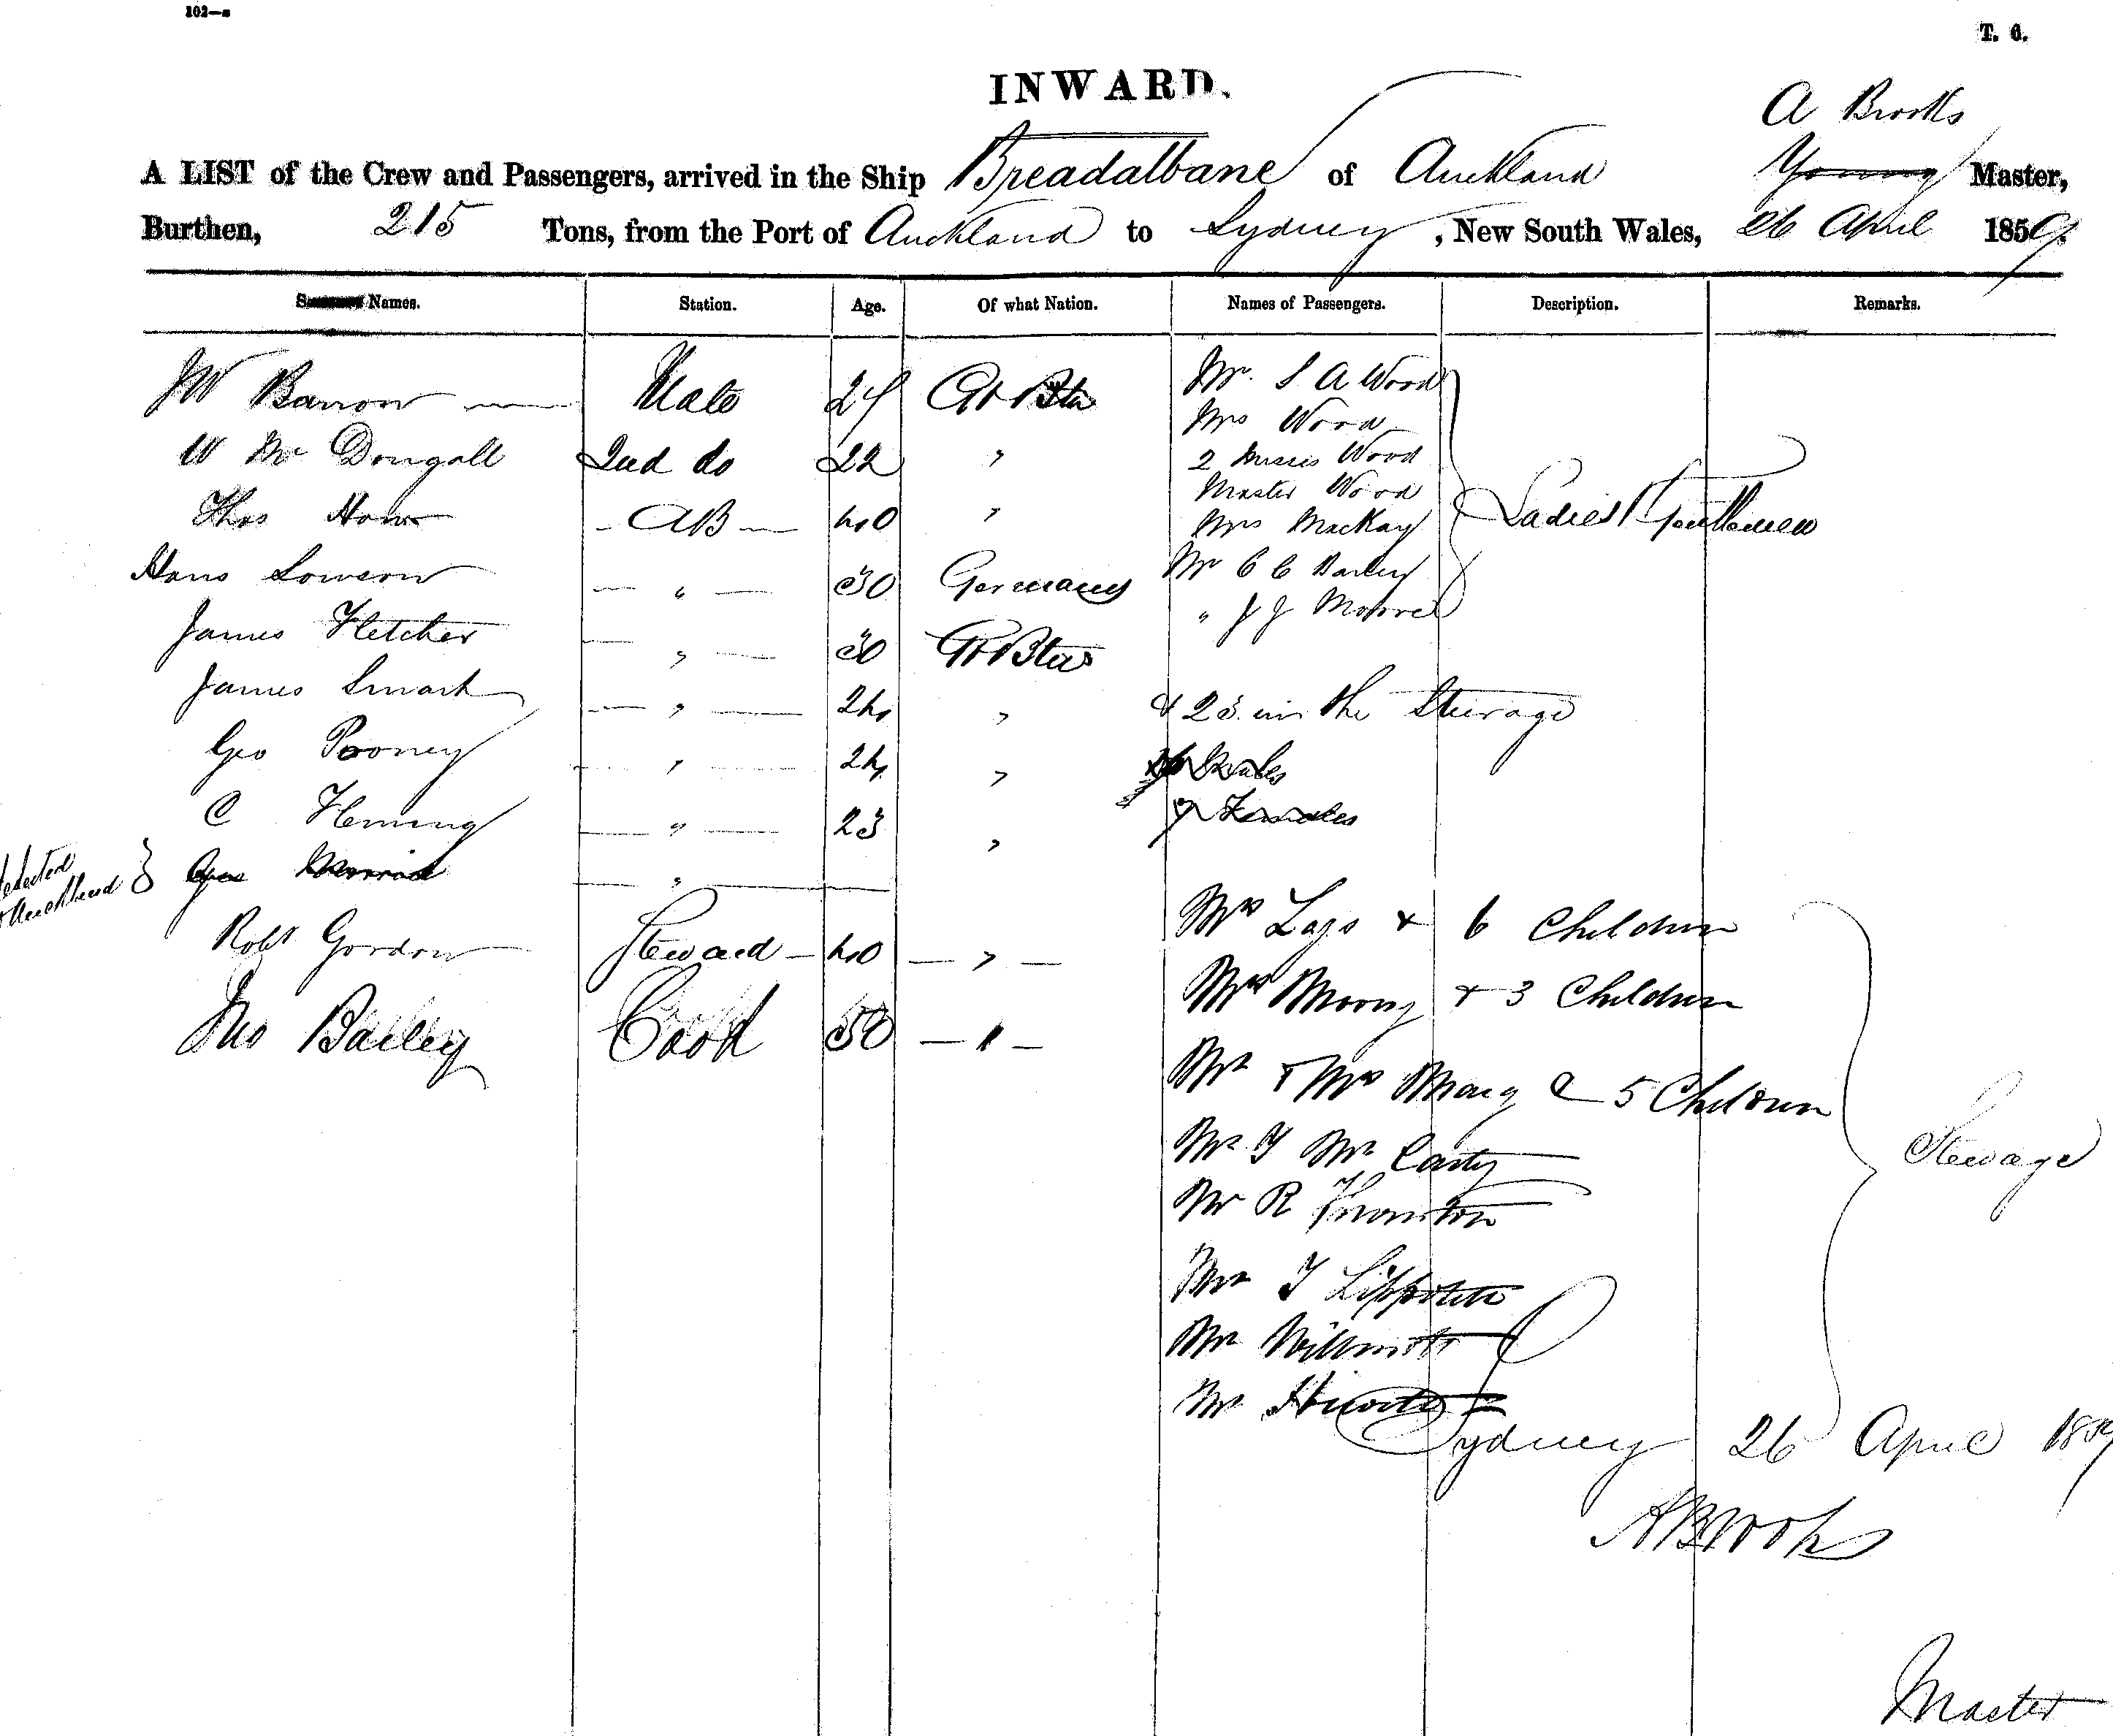 102—
T. 6.
INWARD.
A Brooks
A LIST of the Crew and Passengers, arrived in the Ship Breadalbane of Auckland Young Master,
Burthen, 215 Tons, from the Port of Auckland to Sydney, New South Wales, 26 April 1859.
Names. Station. Age. Of what Nation. Names of Passengers. Description. Remarks.
JW Barron Mate Gt Btn Mr. S A Wood
Mrs Wood
W Mc Dougall 2nd do 22 " 2 Misses Wood
Master Wood
Thos AB 40 " Mrs MacKay Ladies & Gentlemen
Hans Lowson " 30 Germany Mr C C
James Fletcher " 30 Gt Btn " J J Moore
James Smart " 24 " & 23 in the Steerage
Geo " 24 " Males
C Fleming " 23 " 7 Females
Geo "
Auckland
Robt Gordon Steward 40 " Mrs Lays & 6 Children
Jno Bailey Cook 50 " Mrs & 3 Children
Mr & Mrs & 5 Children
Mr T Mc Carty Steerage
Mr R Thornton
Mr T
Mr Willmott
Mr
Sydney 26 April 1859
A Brooks
Master